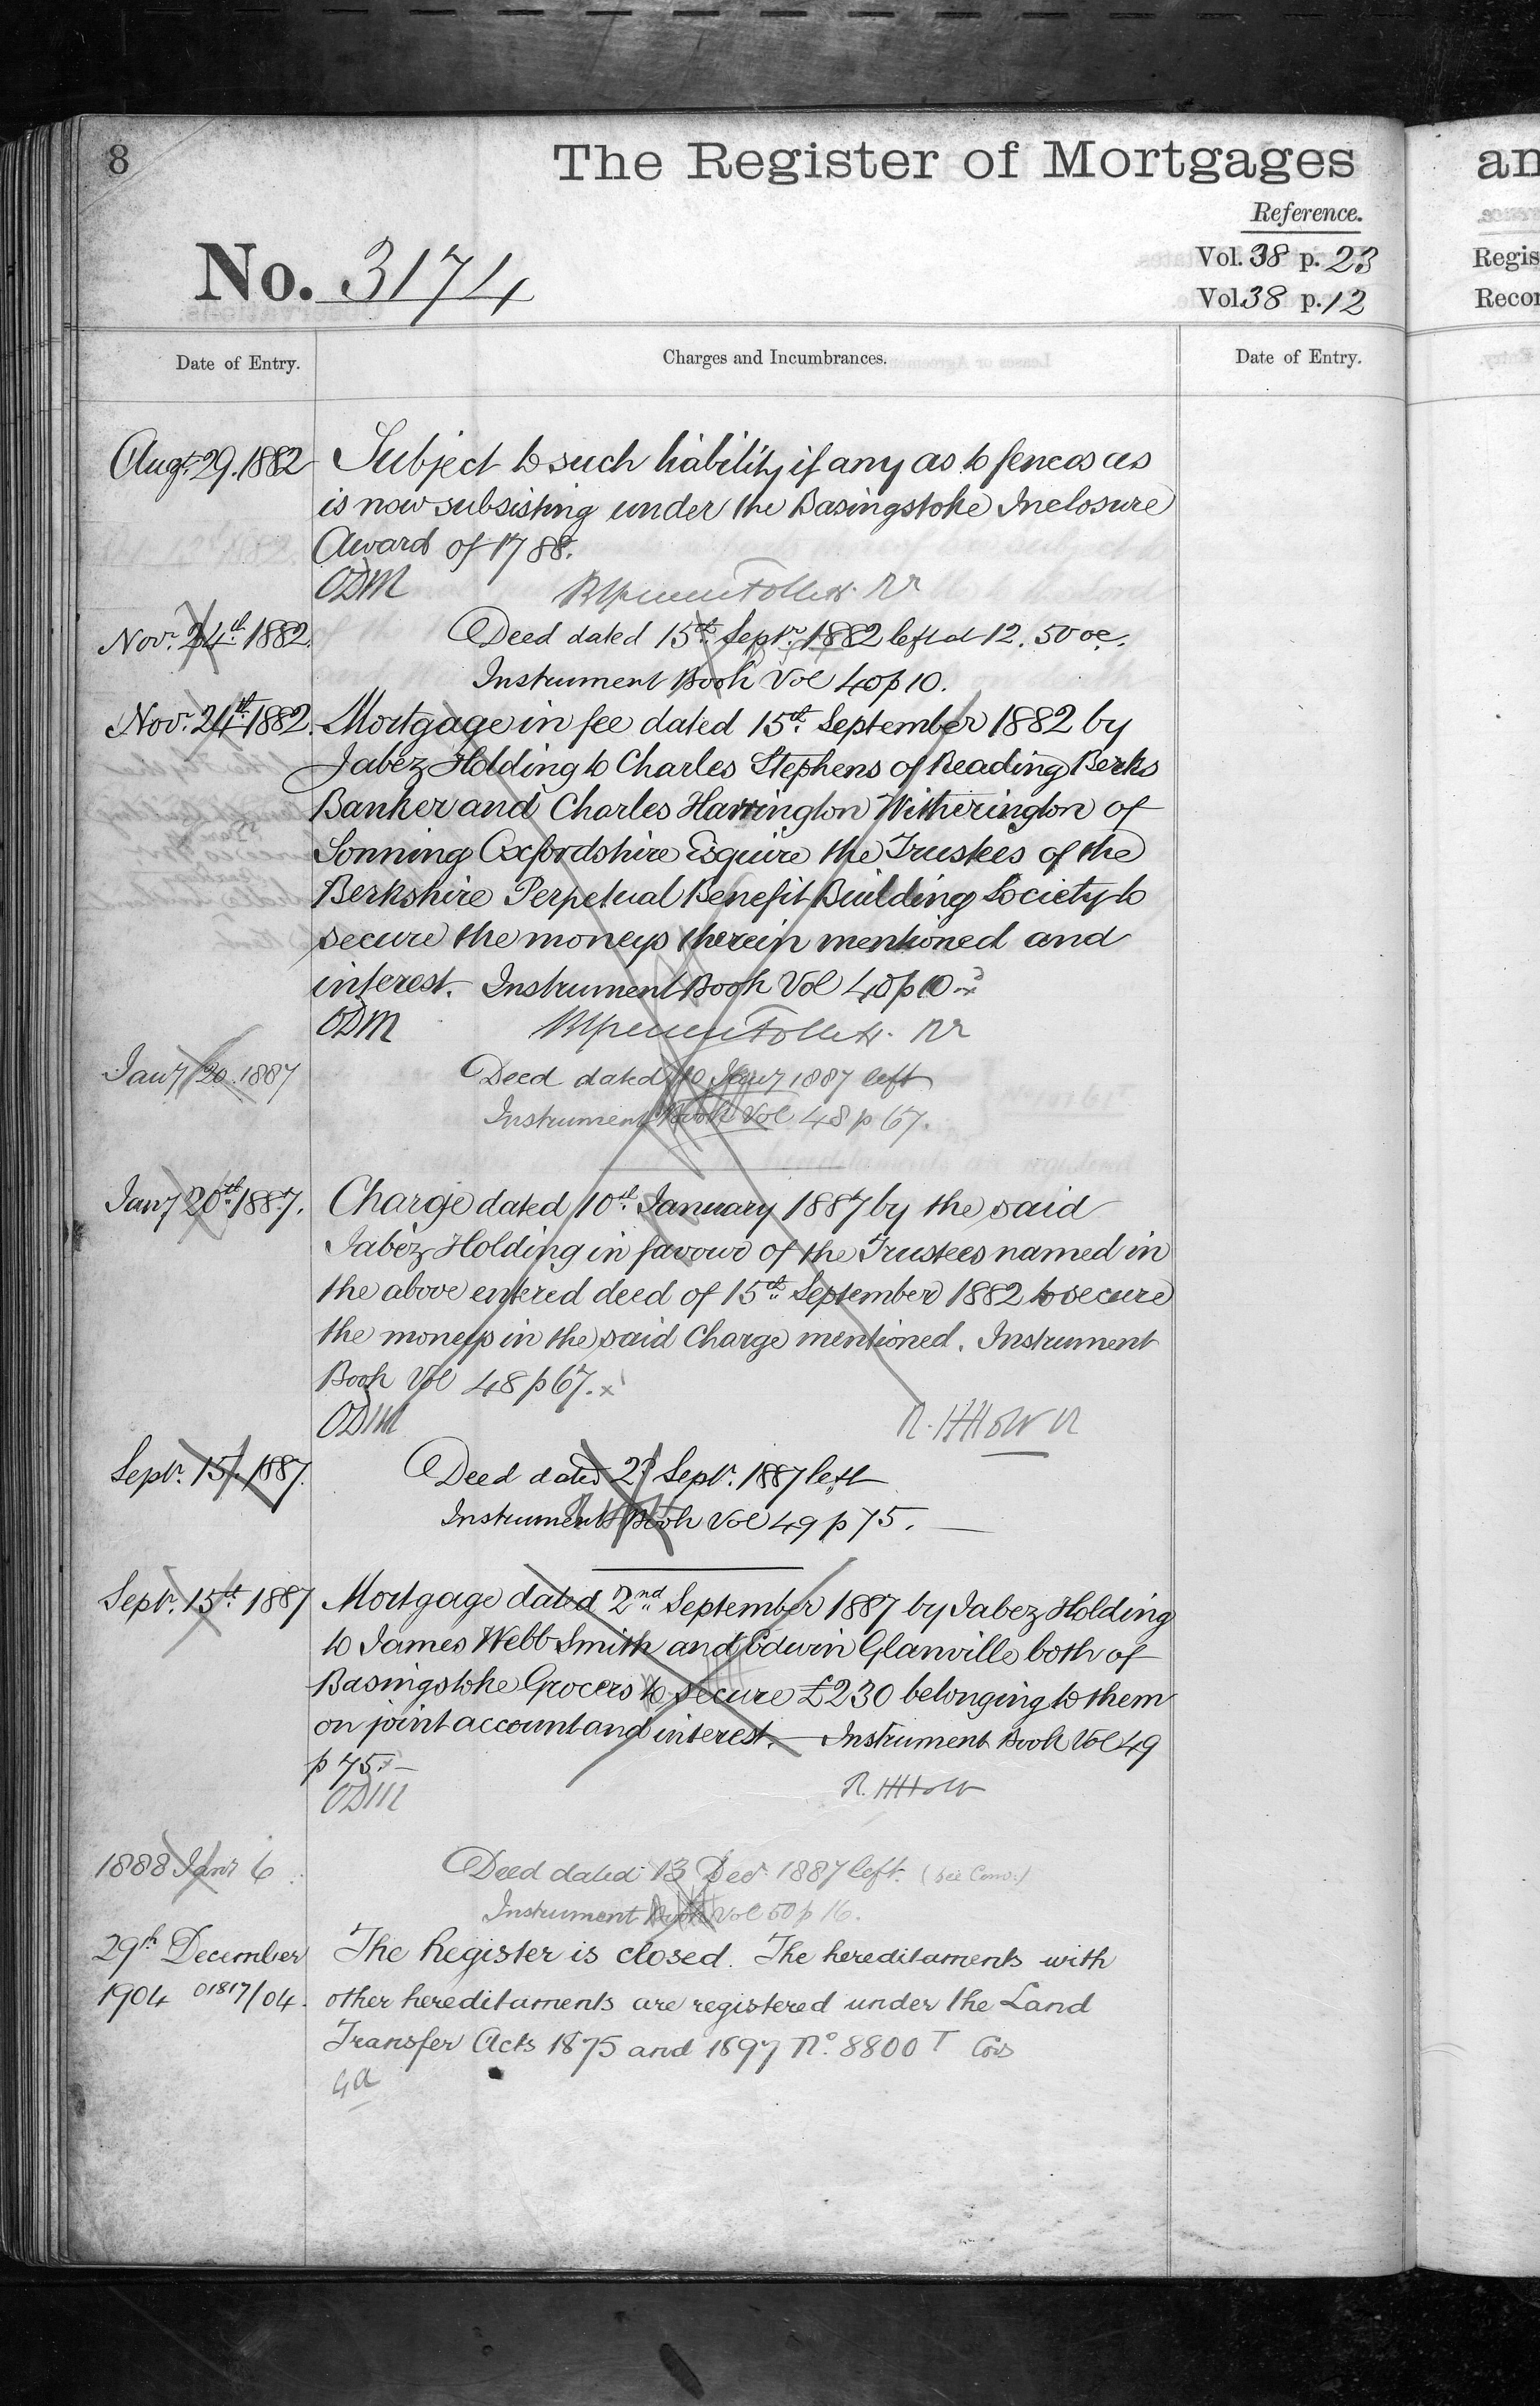 8
The Register of Mortgages
an
Reference.
No. 3174
Vol. 38 p. 23
Regis
Vol 38 p. 12
Recor
Date of Entry.
Charges and Incumbrances.
Date of Entry.
Augt. 29. 1882
Subject to such liability if any as to fences as
is now subsisting under the Basingstoke Inclosure
Award of 1788.
ODM
Nov. 24th 1882.
Deed dated 15th Septr. 1882 left at 12.50 oc.
Instrument Book Vol 40 p 10.
Nov. 24th 1882.
Mortgage in fee dated 15th September 1882 by
Jabez Holding to Charles Stephens of Reading Berks
Banker and Charles Harrington Witherington of
Sonning Oxfordshire Esquire the Trustees of the
Berkshire Perpetual Benefit Building Society to
secure the moneys therein mentioned and
interest. Instrument Book Vol 40 p 10.
ODM
Jany 20. 1887
Deed dated 10 Jany 1887 left
Instrument Book Vol 48 p 67.
Jany 20th 1887.
Charge dated 10th January 1887 by the said
Jabez Holding in favour of the Trustees named in
the above entered deed of 15th September 1882 to secure
the moneys in the said Charge mentioned. Instrument
Book Vol 48 p 67. x
ODM
R. H Holt R
Septr. 15. 1887.
Deed dated 2d Septr. 1887 left
Instrument Book Vol 49 p 75.
Septr. 15th 1887
Mortgage dated 2nd September 1887 by Jabez Holding
to James Webb Smith and Edwin Glanville both of
Basingstoke Grocers to secure £230 belonging to them
on joint account and interest. Instrument Book Vol 49
p 75.
ODM
R. H Holt
1888 Jany 6
Deed dated 13 Decr 1887 left. (see Conv:)
Instrument Book Vol 50 p 16.
29th December
The Register is closed. The hereditaments with
1904 01817/04.
other hereditaments are registered under the Land
Transfer Acts 1875 and 1897 No. 8800 T
GA